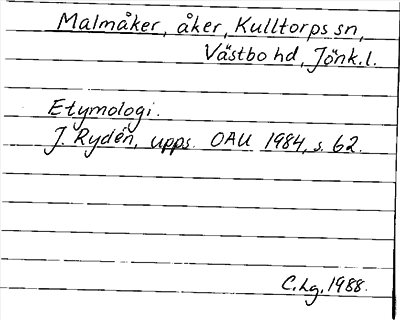 Malmåker, åker, Kulltorps sn,
Västbo hd, Jönk.l.
Etymologi.
J. Rydén, upps. OAU 1984, s. 62.
C.Lg. 1988.